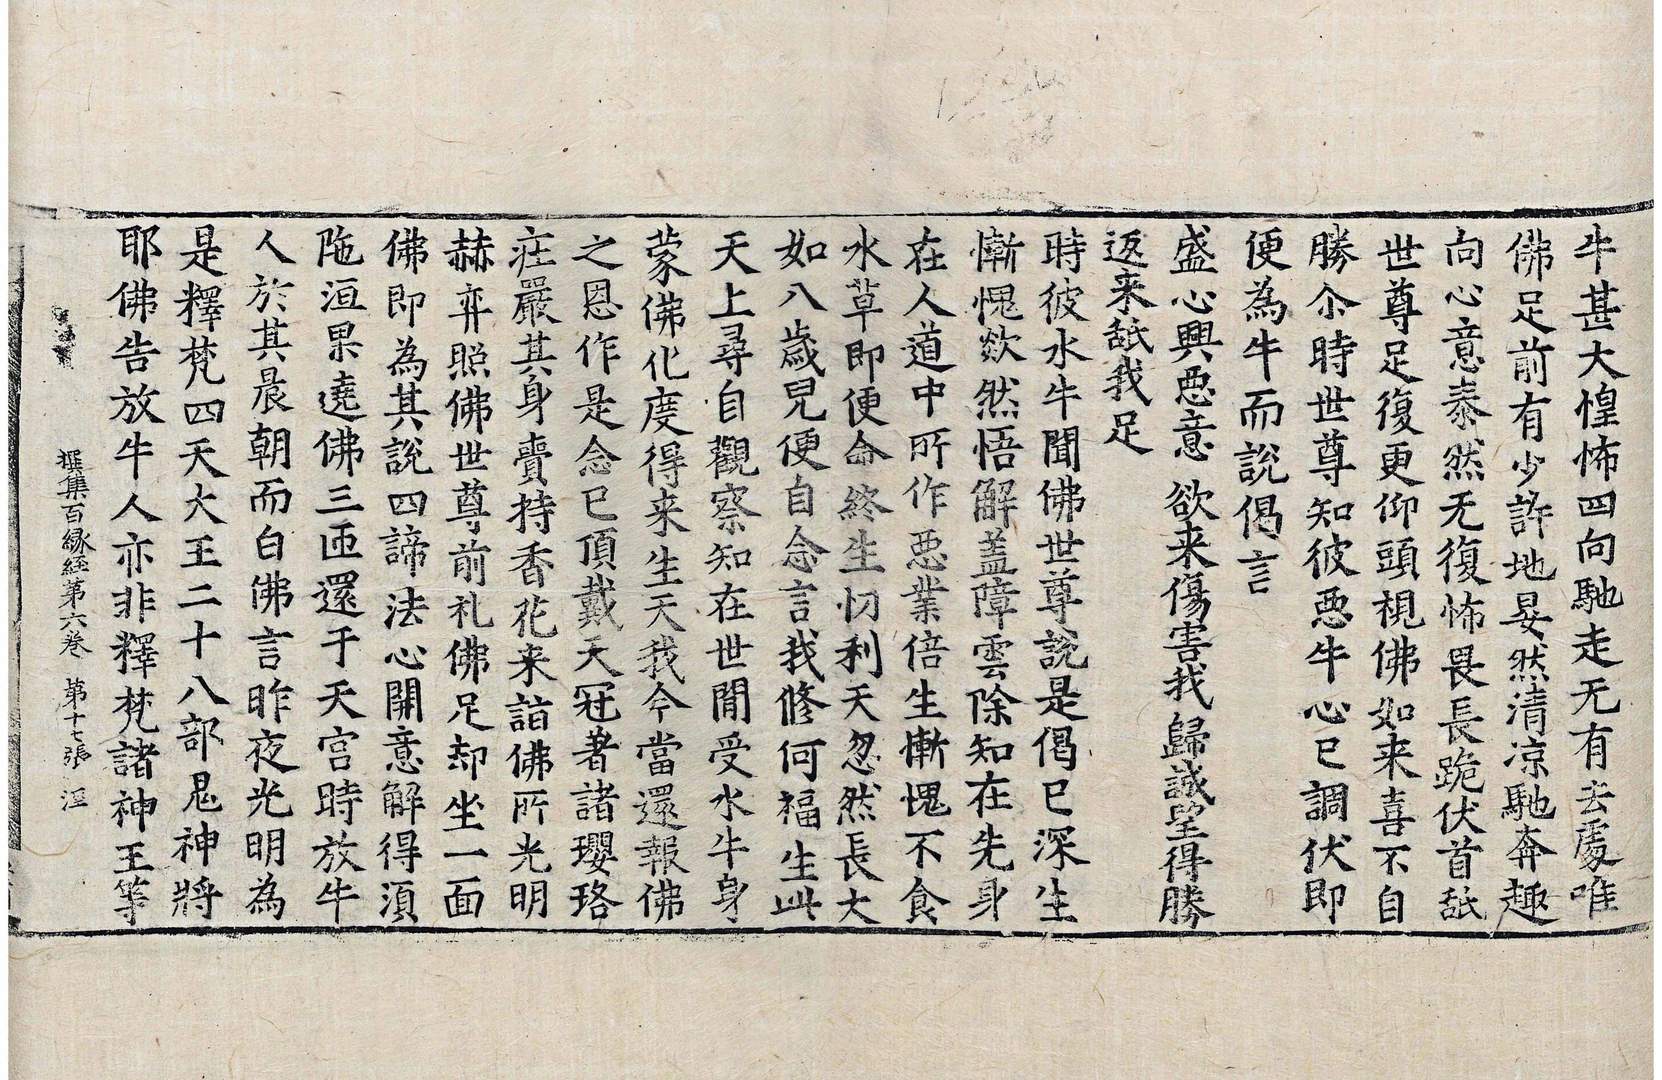 牛甚大惶怖四向馳走无有去處唯
佛足前有少許地晏然清凉馳奔趣
向心意泰然无復怖畏長跪伏首舐
世尊足復更仰頭視佛如来喜不自
勝尒時世尊知彼惡牛心已調伏即
便為牛而說偈言
盛心興惡意 欲来傷害我 歸誠望得勝
返来舐我足
時彼水牛聞佛世尊說是偈已深生
慚愧欻然悟解蓋障雲除知在先身
在人道中所作惡業倍生慚愧不食
水草即便命終生忉利天忽然長大
如八歲兒便自念言我修何福生此
天上尋自觀察知在世閒受水牛身
蒙佛化度得来生天我今當還報佛
之恩作是念已頂戴天冠著諸瓔珞
莊嚴其身賷持香花来詣佛所光明
赫弈照佛世尊前礼佛足却坐一面
佛即為其說四諦法心開意解得湏
陁洹果遶佛三匝還于天宫時放牛
人於其晨朝而白佛言昨夜光明為
是釋梵四天大王二十八部鬼神將
耶佛告放牛人亦非釋梵諸神王等
撰集百緣經第六卷 第十七張 涇